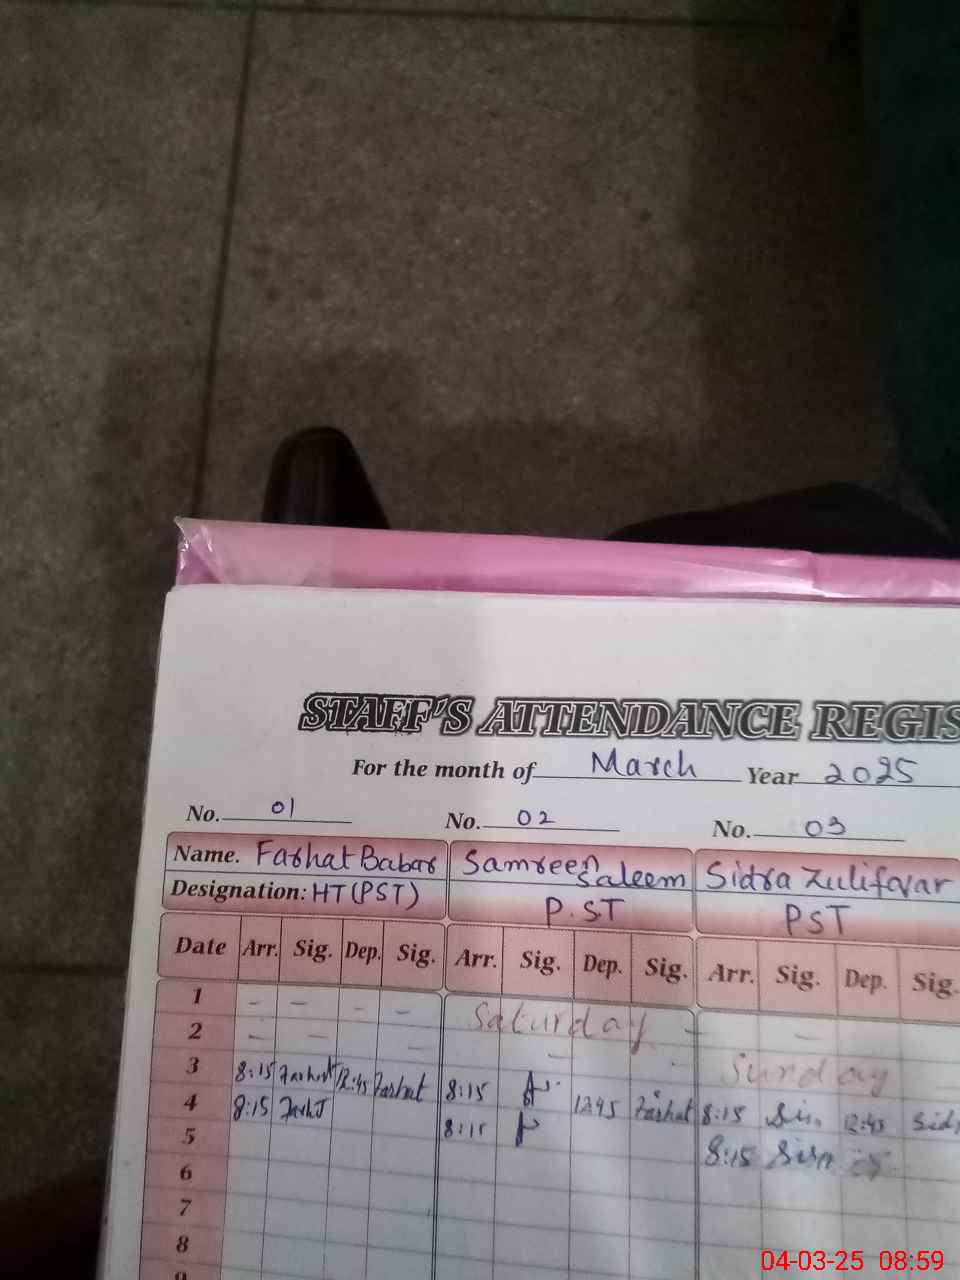 STAFF'S ATTENDANCE REGIS
For the month of March Year 2025
No. 01 No. 02 No. 03
Name. Farhat Babar Samreen Saleem Sidra Zulifqar
Designation: HT (PST) P.ST PST
Date Arr. Sig. Dep. Sig. Arr. Sig. Dep. Sig. Arr. Sig. Dep. Sig.
1 - - - - Saturday -
2 - - - - - Sunday -
3 8:15 Farhat 12:45 Farhat 8:15 1245 Farhat 8:15 12:45 Sid
4 8:15 8:15 8:15
5
6
7
8
9
04-03-25 08:59